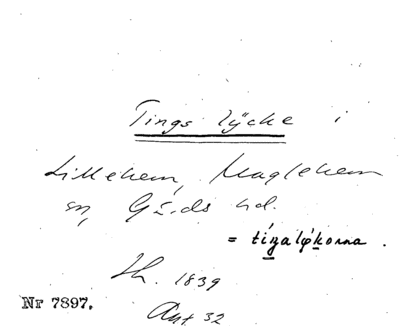 Tings lÿcke i
Lillehem, Maglehem
sn, Gärds hd.
= tiŋalykorna.
Sk. 1839
Nr 7897.
Ant. 32